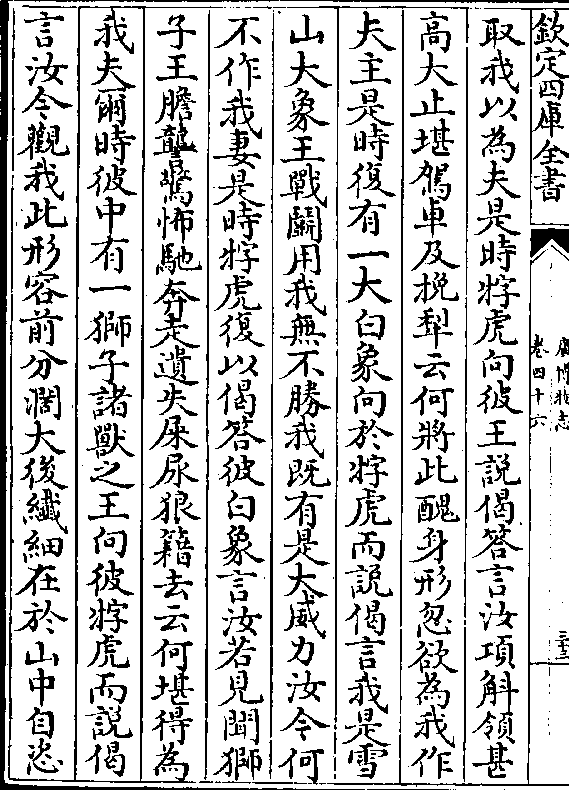 欽定四庫全書
廣博物志
卷四十六
三十三
取我以為夫是時牸虎向彼王説偈答言汝項斛領甚
高大止堪駕車及挽犁云何將此醜身形忽欲為我作
夫主是時復有一大白象向於牸虎而説偈言我是雪
山大象王戰鬭用我無不勝我既有是大威力汝今何
不作我妻是時牸虎復以偈答彼白象言汝若見聞獅
子王膽讋驚怖馳奔走遺失屎尿狼籍去云何堪得為
我夫爾時彼中有一獅子諸獸之王向彼牸虎而説偈
言汝今觀我此形容前分濶大後纖細在於山中自恣